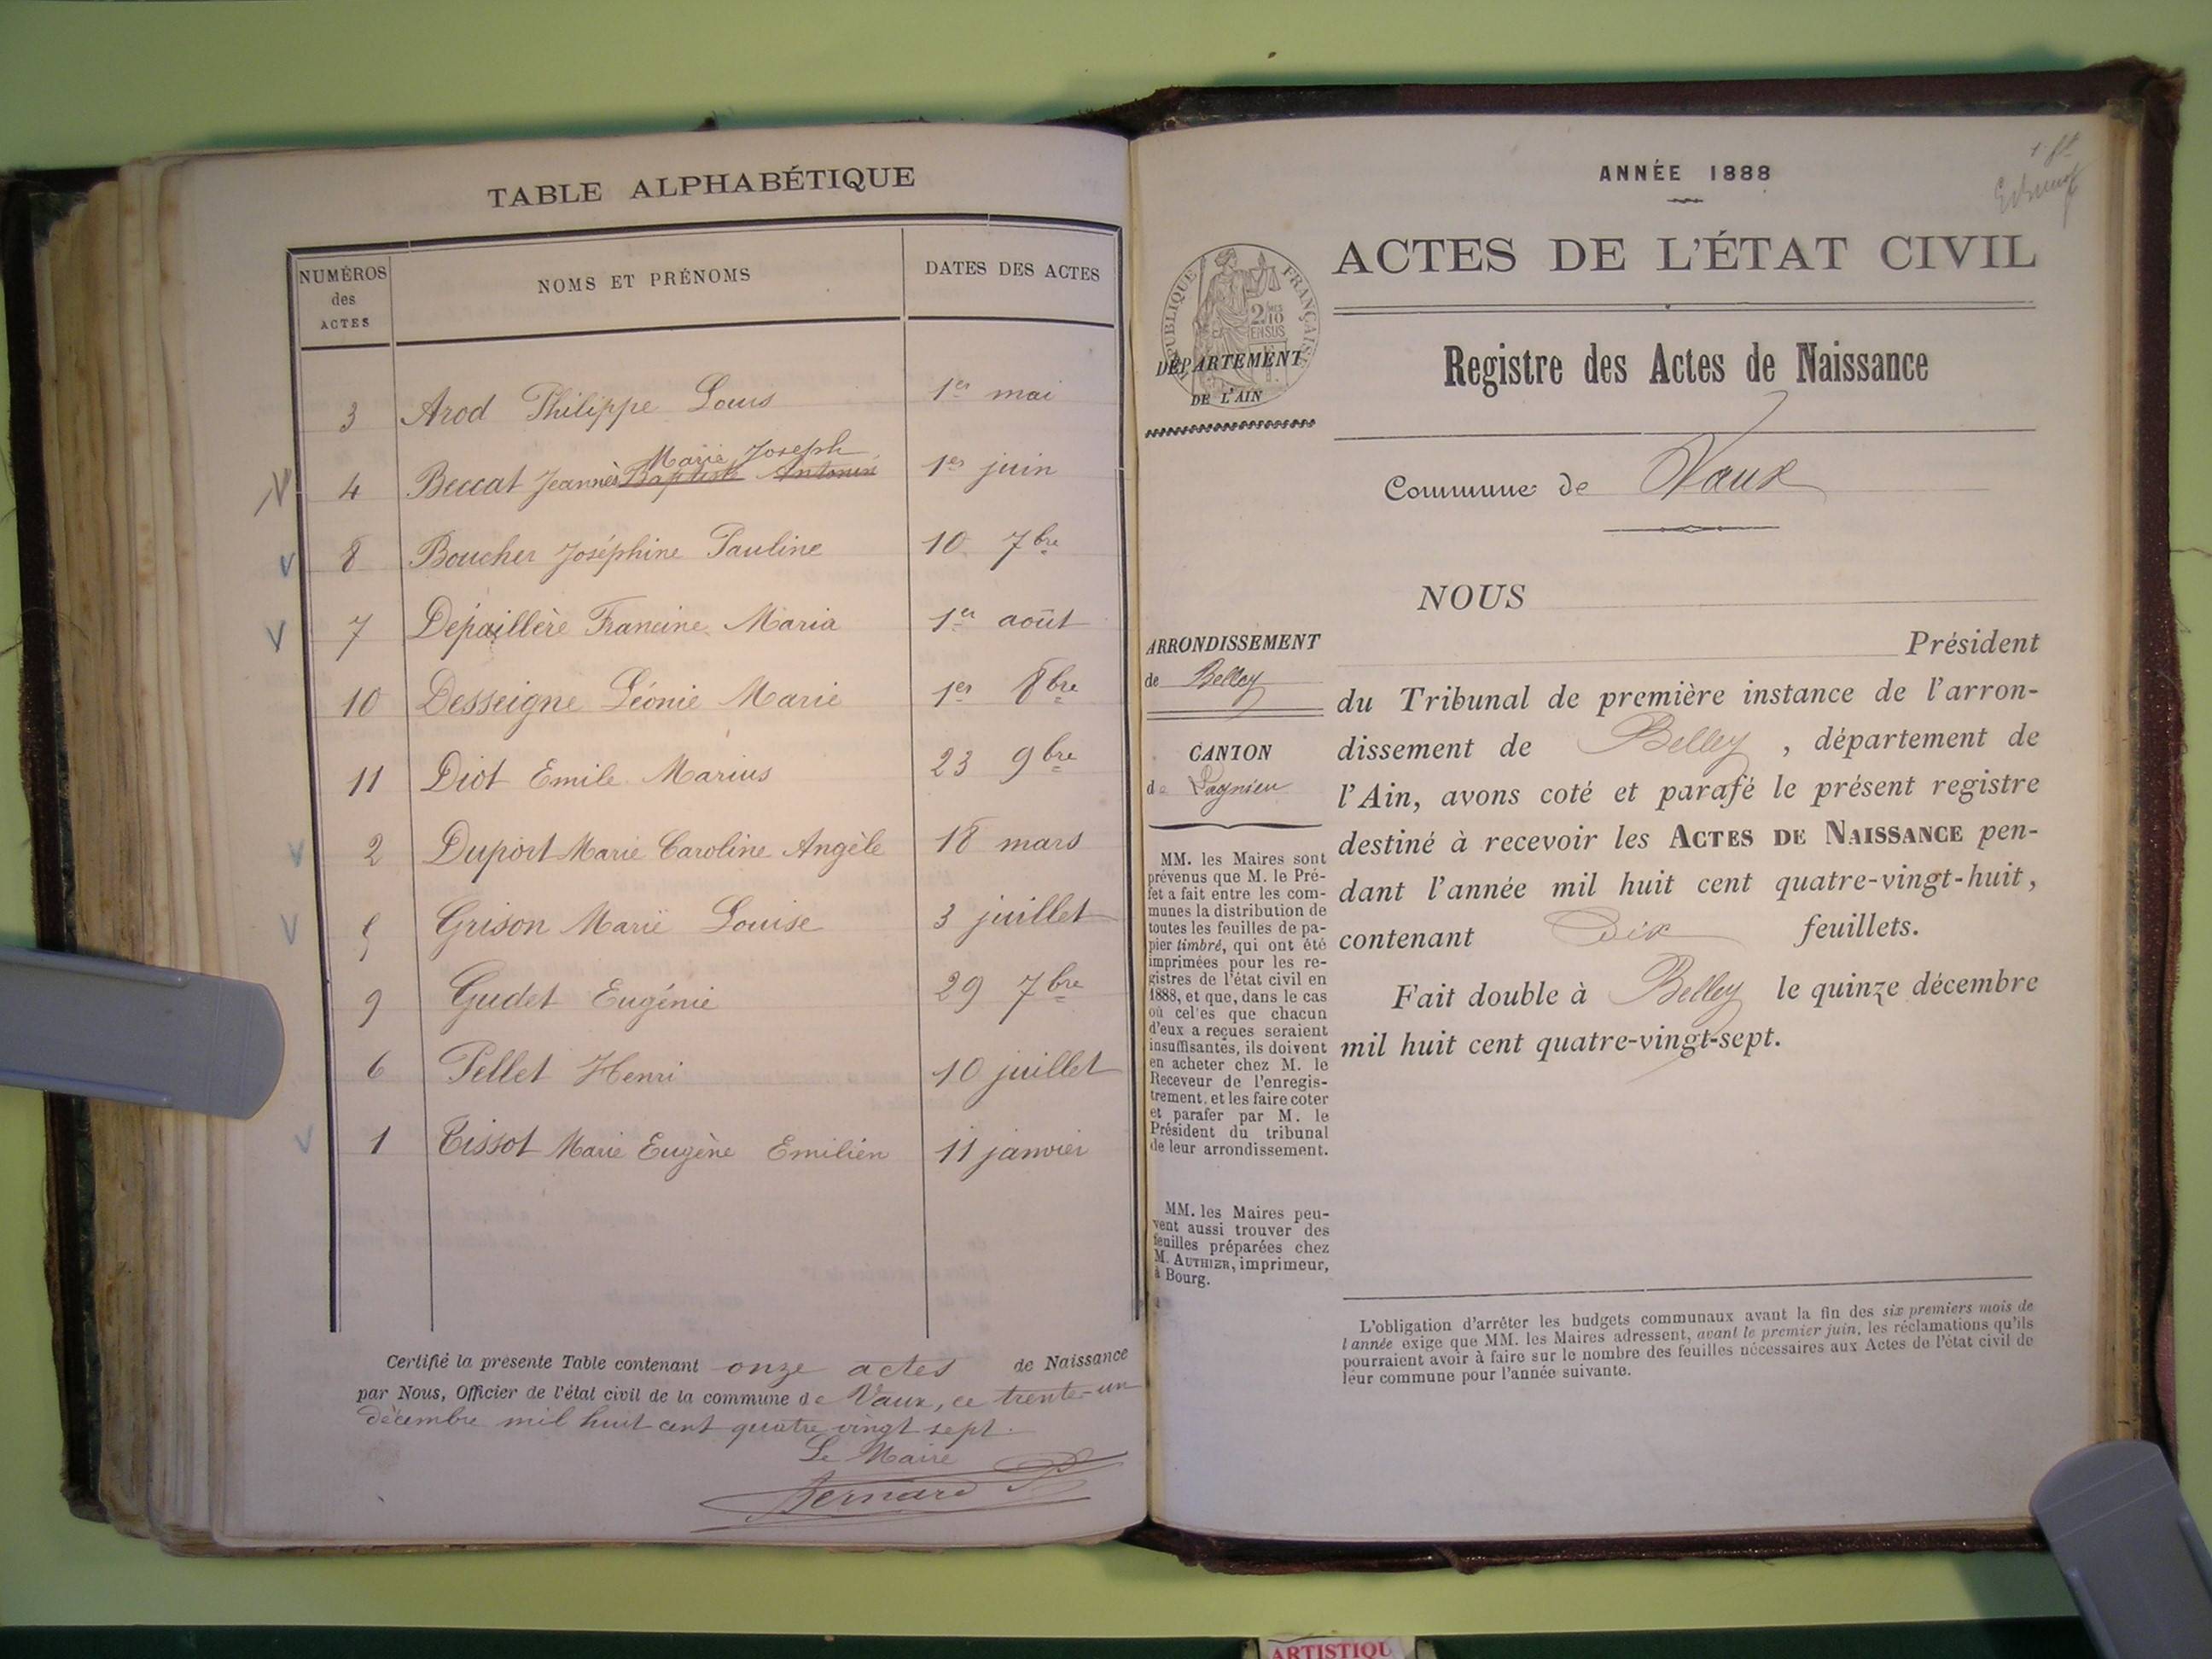 TABLE ALPHABÉTIQUE
NUMÉROS des ACTES NOMS ET PRÉNOMS DATES DES ACTES
3 Arod Philippe Louis 1er mai
Marie Joseph
4 Beccat Jeannès Baptiste Antonin 1er juin
8 Boucher Joséphine Pauline 10 7bre
7 Dépaillère Francine Maria 1er août
10 Desseigne Léonie Marie 1er 8bre
11 Diot Emile Marius 23 9bre
2 Duport Marie Caroline Angèle 18 mars
5 Grison Marie Louise 3 juillet
9 Gudet Eugénie 29 7bre
6 Pellet Henri 10 juillet
1 Tissot Marie Eugène Emilien 11 janvier
Certifié la présente Table contenant onze actes de Naissance
par Nous, Officier de l'état civil de la commune de Vaux, ce trente-un
décembre mil huit cent quatre vingt sept.
Le Maire
Bernard
ANNÉE 1888
ACTES DE L'ÉTAT CIVIL
RÉPUBLIQUE FRANÇAISE
2 10 EN SUS
DÉPARTEMENT
DE L'AIN
Registre des Actes de Naissance
Commune de Vaux
NOUS
Président
du Tribunal de première instance de l'arron-
dissement de Belley, département de
l'Ain, avons coté et parafé le présent registre
destiné à recevoir les ACTES DE NAISSANCE pen-
dant l'année mil huit cent quatre-vingt-huit,
contenant Dix feuillets.
Fait double à Belley le quinze décembre
mil huit cent quatre-vingt-sept.
ARRONDISSEMENT
de Belley
CANTON
de Lagnieu
MM. les Maires sont
prévenus que M. le Pré-
fet a fait entre les com-
munes la distribution de
toutes les feuilles de pa-
pier timbré, qui ont été
imprimées pour les re-
gistres de l'état civil en
1888, et que, dans le cas
où celles que chacun
d'eux a reçues seraient
insuffisantes, ils doivent
en acheter chez M. le
Receveur de l'enregis-
trement, et les faire coter
et parafer par M. le
Président du tribunal
de leur arrondissement.
MM. les Maires peu-
vent aussi trouver des
feuilles préparées chez
M. AUTHIER, imprimeur,
à Bourg.
L'obligation d'arrêter les budgets communaux avant la fin des six premiers mois de
l'année exige que MM. les Maires adressent, avant le premier juin, les réclamations qu'ils
pourraient avoir à faire sur le nombre des feuilles nécessaires aux Actes de l'état civil de
leur commune pour l'année suivante.
ARTISTIQU